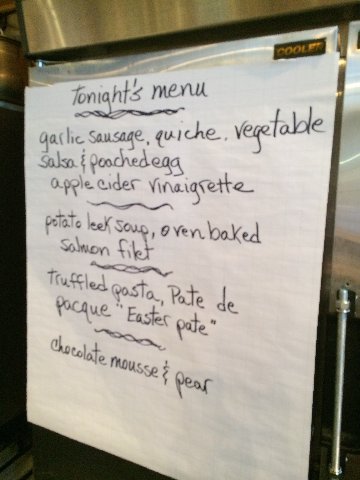 COOLER
tonight's menu
garlic sausage, quiche, vegetable
salsa & poached egg
apple cider vinaigrette
potato leek soup, oven baked
salmon filet
truffled pasta, Pate de
pacque "Easter pate"
chocolate mousse & pear